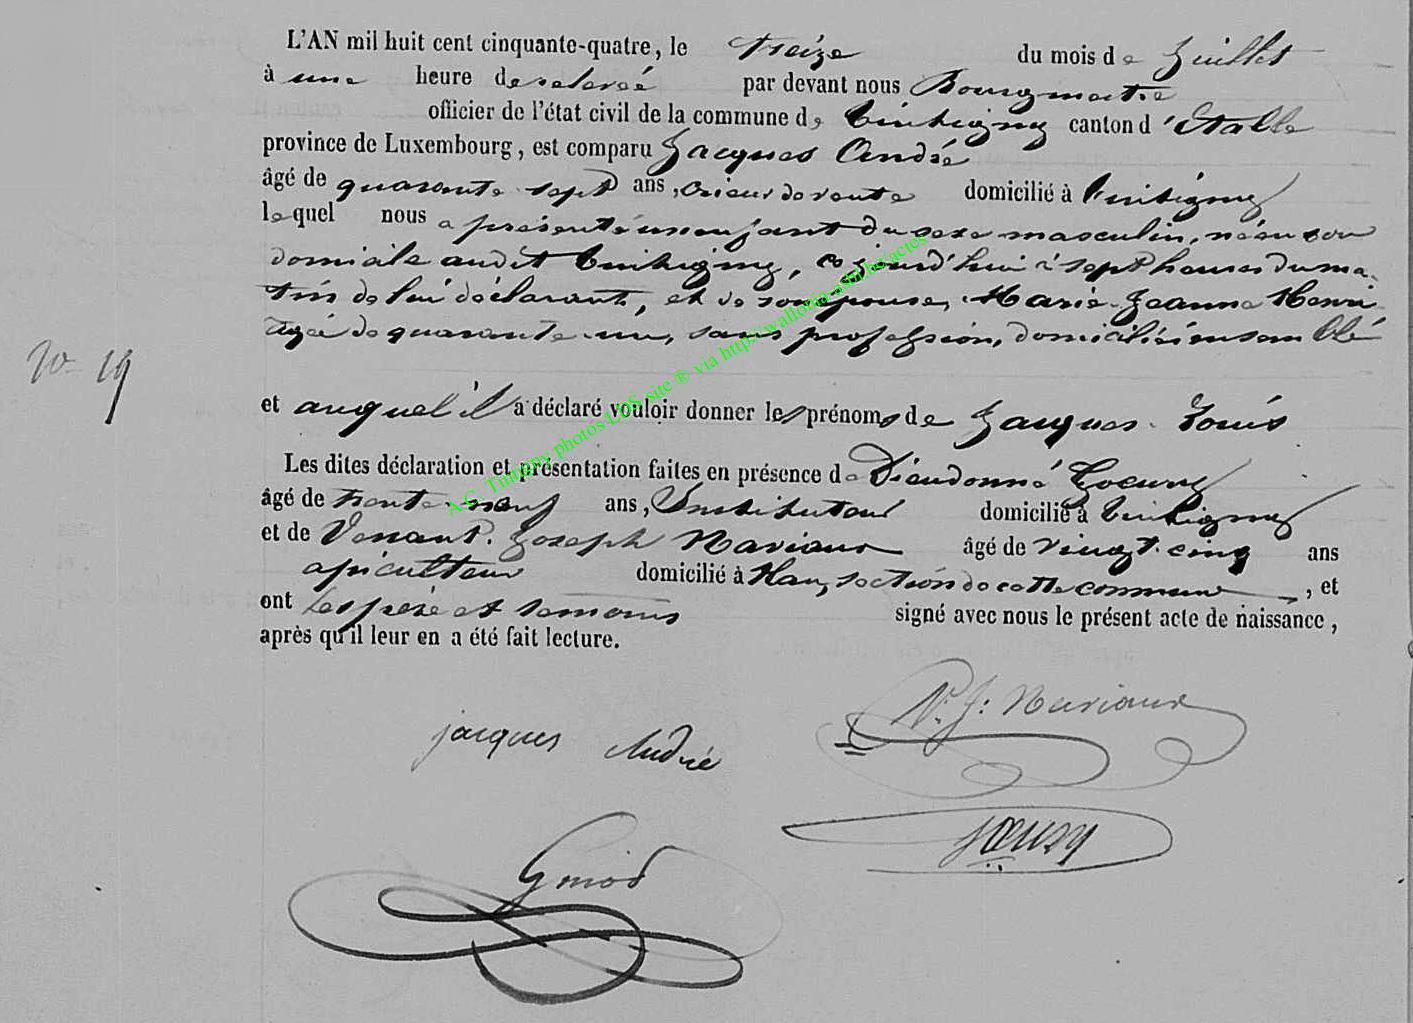 L'AN mil huit cent cinquante-quatre, le treize du mois de Juillet
à une heure de relevée par devant nous Bourgmestre
officier de l'état civil de la commune de Tintigny canton d'Etalle
province de Luxembourg, est comparu Jacques André
âgé de quarante sept ans, crieur de vente domicilié à Tintigny
lequel nous a présenté un enfant du sexe masculin, né en son
domicile audit Tintigny, ce jourd'hui à sept heures du ma-
tin de lui déclarant, et de son épouse, Marie-Jeanne Henri
agée de quarante-un, sans profession, domiciliés ensemble
N° 19
et auquel il a déclaré vouloir donner les prénoms de Jacques-Louis
Les dites déclaration et présentation faites en présence de Dieudonné
âgé de trente-neuf ans, Instituteur domicilié à Tintigny
et de Venant-Joseph Mariaux âgé de vingt-cinq ans
domicilié à Han, section de cette commune, et
ont les père et témoins signé avec nous le présent acte de naissance,
après qu'il leur en a été fait lecture.
V. J: Mariaux
jacques André
A.C. Tintigny photos LDS site ® via http://wallonia-asbl.be/actes